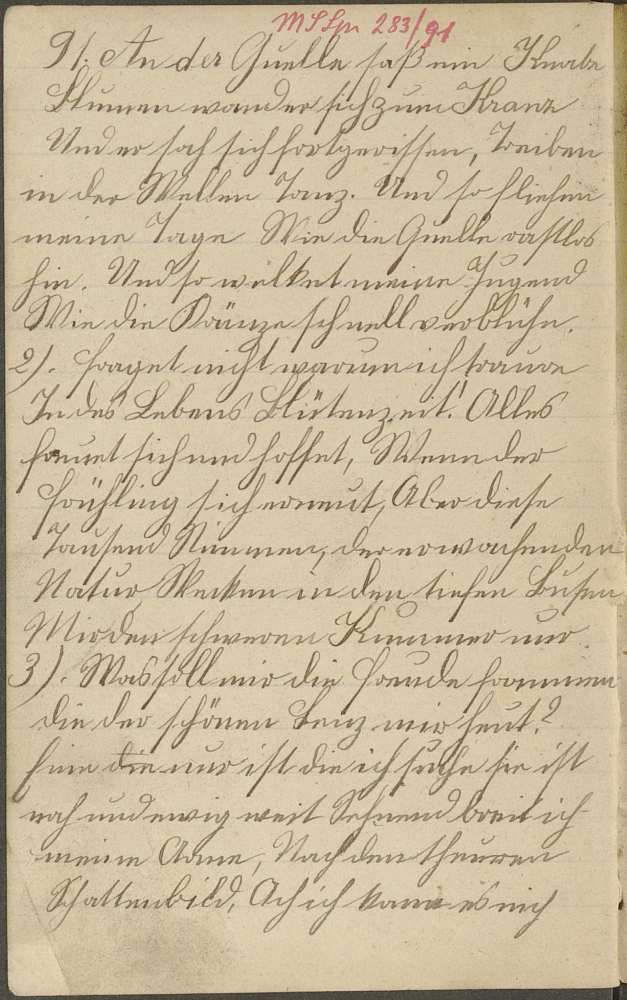 MSSpr 283/91
91. An der Quelle saß ein Knabe
Blumen wander sich zum Kranz
Und er sah sich fortgerissen, Treiben
in der Wellen Tanz. Und so fliehen
meine Tage Wie die Quelle rastlos
hin. Und so welket meine Jugend
Wie die Kränze schnell verblühn.
2). Fraget nicht warum ich traure
In des Lebens Blütenzeit! Alles
freuet sich und hoffet, Wenn der
Frühling sich erneut, Aber diese
Tausend Stimmen, der erwachenden
Natur, Wecken in den tiefen Busen
Mir den schweren Kummer nur
3). Was soll mir die Freude frommen
die der schönen Lenz mir heut?
Eine die nur ist die ich suche sie ist
nah und ewig weit Sehnend breit ich
meine Arme, Nach den theuren
Schattenbild, Ach ich kann es nich